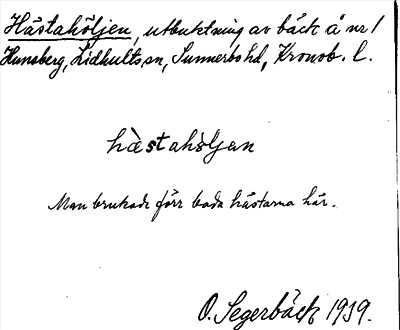 Hästahöljen, utbuktning av bäck å nr 1
Hunsberg, Lidhults sn, Sunnerbo hd, Kronob. l.
hästahöljan
Man brukade förr bada hästarna här.
O. Segerbäck 1939.